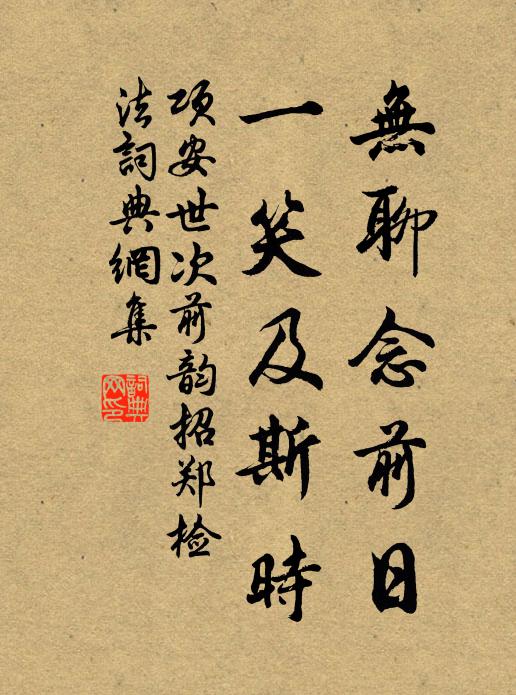 無聊念前日
一笑及斯時
项安世次前韵招郑检
法詞典網集
詞典網印